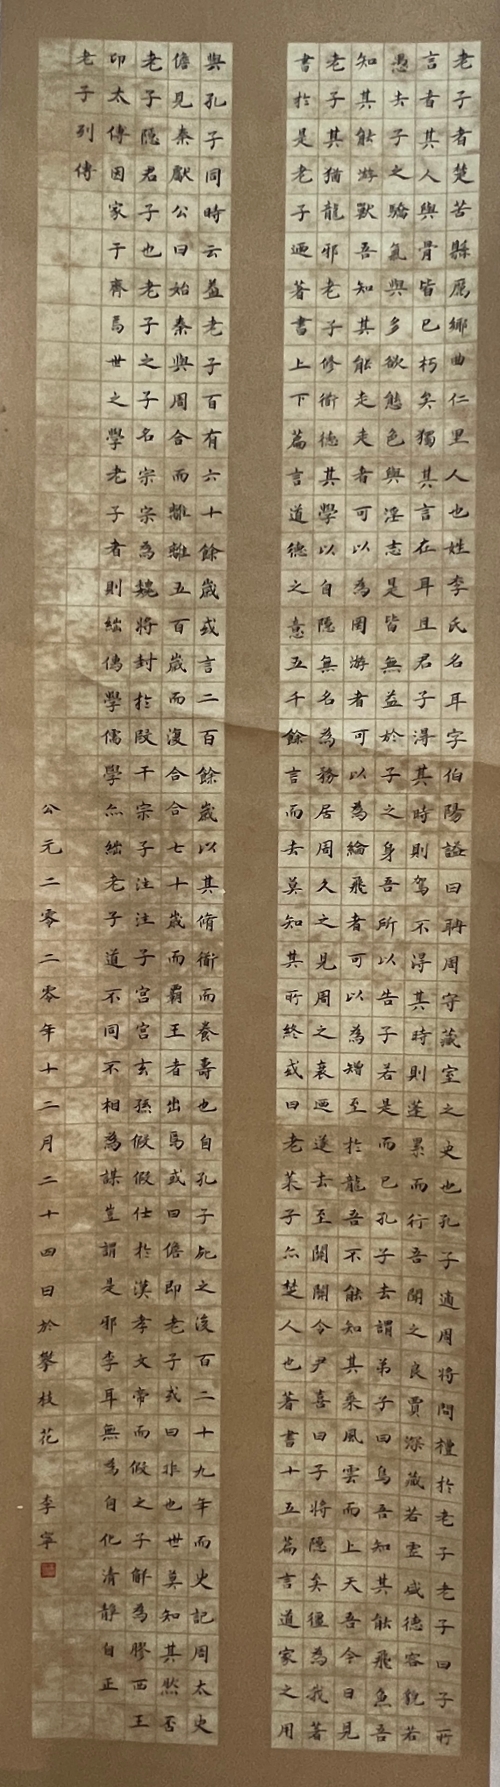 老子者楚苦縣厲鄉曲仁里人也姓李氏名耳字伯陽謚曰聃周守藏室之史也孔子適周將問禮於老子老子曰子所
言者其人與骨皆已朽矣獨其言在耳且君子得其時則駕不得其時則蓬累而行吾聞之良賈深藏若虛盛德容貌若
愚去子之驕氣與多欲態色與淫志是皆無益於子之身吾所以告子若是而已孔子去謂弟子曰鳥吾知其能飛魚吾
知其能游獸吾知其能走走者可以為罔游者可以為綸飛者可以為矰至於龍吾不能知其乘風雲而上天吾今日見
老子其猶龍邪老子修衜德其學以自隱無名為務居周久之見周之衰迺遂去至關關令尹喜曰子將隱矣彊為我著
書於是老子迺著書上下篇言道德之意五千餘言而去莫知其所終或曰老萊子亦楚人也著書十五篇言道家之用
與孔子同時云蓋老子百有六十餘歲或言二百餘歲以其脩衜而養壽也自孔子死之後百二十九年而史記周太史
儋見秦獻公曰始秦與周合而離離五百歲而復合合七十歲而霸王者出焉或曰儋即老子或曰非也世莫知其然否
老子隱君子也老子之子名宗宗為魏將封於段干宗子注注子宮宮玄孫假假仕於漢孝文帝而假之子解為膠西王
卬太傅因家于齊焉世之學老子者則絀儒學儒學亦絀老子道不同不相為謀豈謂是邪李耳無為自化清靜自正
老子列傳
公元二零二零年十二月二十四日於攀枝花 李寧